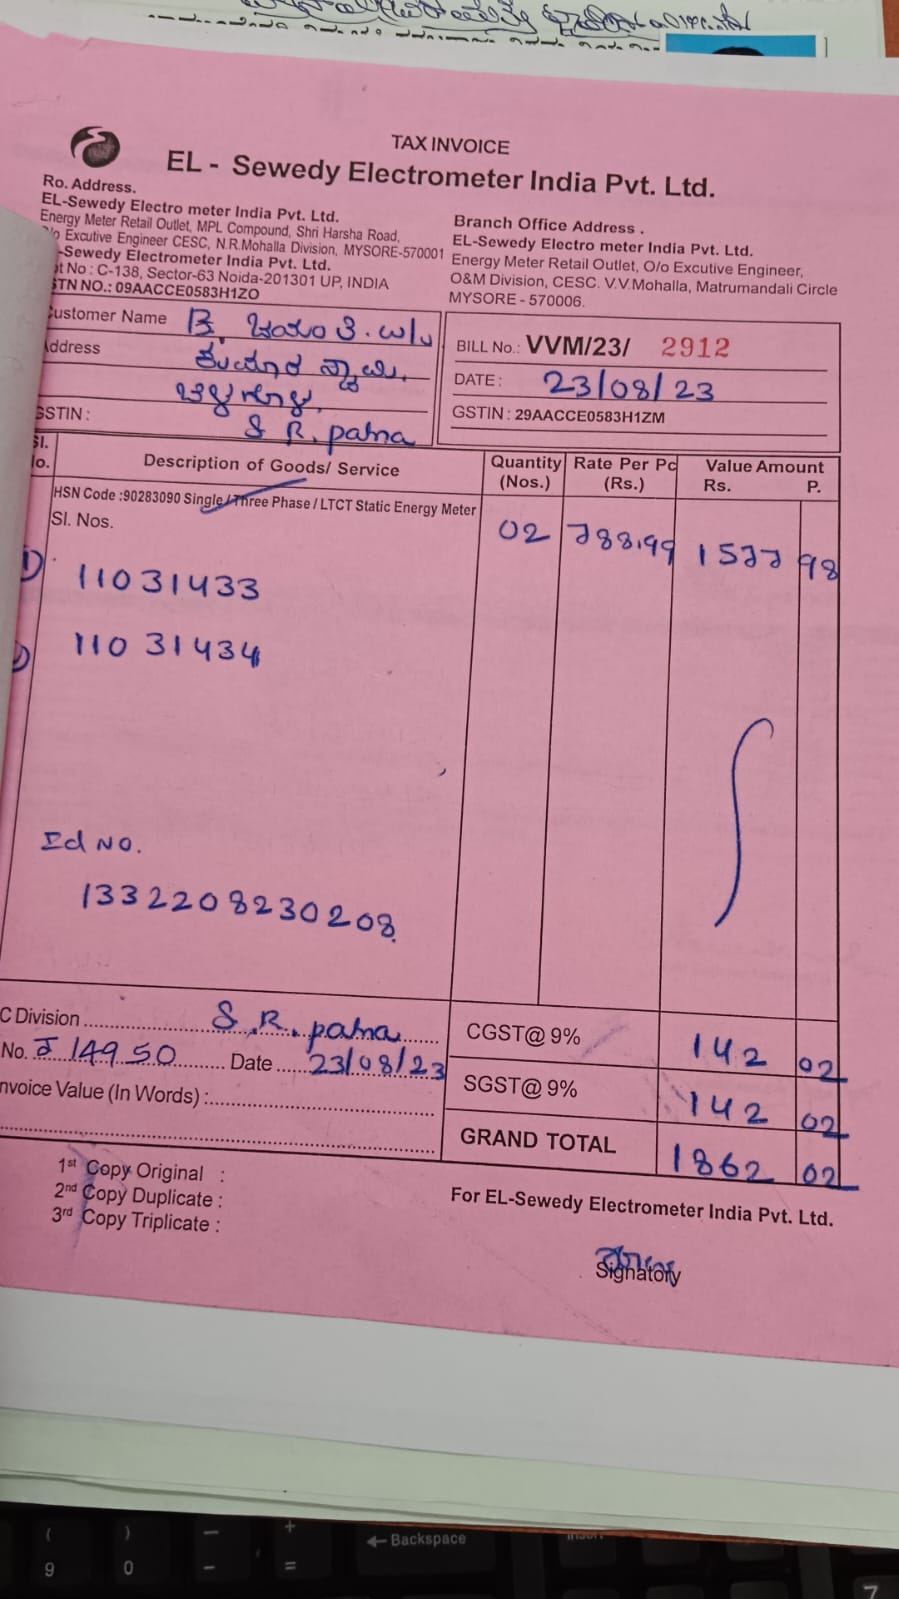 TAX INVOICE
EL - Sewedy Electrometer India Pvt. Ltd.
Ro. Address.
EL-Sewedy Electro meter India Pvt. Ltd.
Energy Meter Retail Outlet, MPL Compound, Shri Harsha Road,
Excutive Engineer CESC, N.R.Mohalla Division, MYSORE-570001
-Sewedy Electrometer India Pvt. Ltd.
No : C-138, Sector-63 Noida-201301 UP, INDIA
STN NO.: 09AACCE0583H1ZO
Branch Office Address .
EL-Sewedy Electro meter India Pvt. Ltd.
Energy Meter Retail Outlet, O/o Excutive Engineer,
O&M Division, CESC. V.V.Mohalla, Matrumandali Circle
MYSORE - 570006.
ustomer Name
ddress
GSTIN :
S R. patna
BILL No.: VVM/23/ 2912
DATE : 23/08/23
GSTIN : 29AACCE0583H1ZM
Sl. No. Description of Goods/ Service Quantity (Nos.) Rate Per Pc (Rs.) Value Amount Rs. P.
HSN Code :90283090 Single / Three Phase / LTCT Static Energy Meter
Sl. Nos. 02 788.99 1577 98
1) 11031433
11031434
Id No.
1332208230208
C Division S.R. patna CGST@ 9% 142 02
No. 514950 Date 23/08/23 SGST@ 9% 142 02
nvoice Value (In Words) :
GRAND TOTAL 1862 02
1st Copy Original :
2nd Copy Duplicate :
3rd Copy Triplicate :
For EL-Sewedy Electrometer India Pvt. Ltd.
Signatory
( ) — +
9 0 - =
← Backspace
7